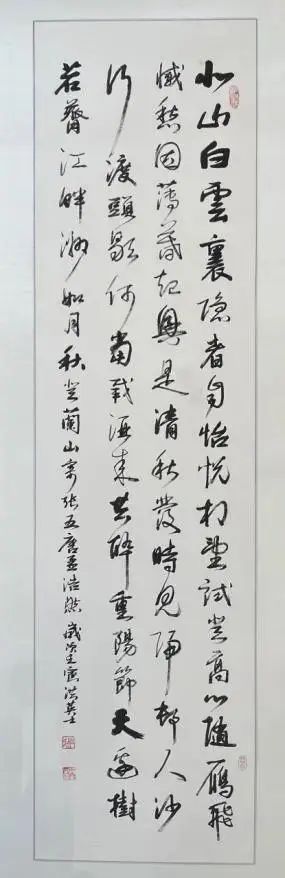 北山白雲裏隐者自怡悦相望試登高心隨鴈飛
滅愁因薄暮起興是清秋發時見歸邨人沙
行渡頭歇何當载酒来共醉重陽節天邊樹
若薺江畔洲如月秋登蘭山寄张五唐孟浩然歲次壬寅洪英